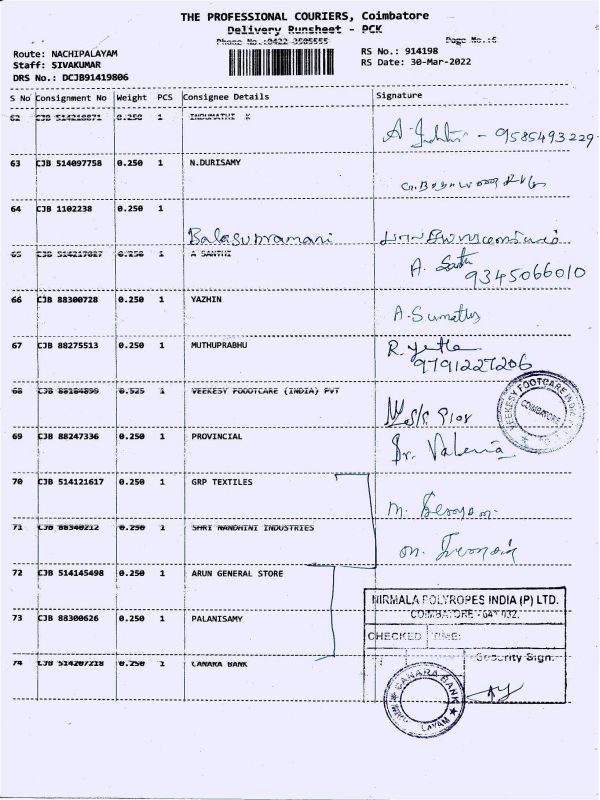 THE PROFESSIONAL COURIERS, Coimbatore
Delivery Runsheet - PCK
Phone No.:0422 3505555 Page No.:6
Route: NACHIPALAYAM RS No.: 914198
Staff: SIVAKUMAR RS Date: 30-Mar-2022
DRS No.: DCJB91419806
S No Consignment No Weight PCS Consignee Details Signature
62 CJB 514218871 0.250 1 INDUMATHI K
- 9585493229
63 CJB 514097758 0.250 1 N.DURISAMY
64 CJB 1102238 0.250 1
Balasubramani
65 CJB 514217027 0.250 1 A SANTHI
A. 9345066010
66 CJB 88300728 0.250 1 YAZHIN
A. Sumathy
67 CJB 88275513 0.250 1 MUTHUPRABHU
R. 9791227206
68 CJB 88184899 0.525 1 VEEKESY FOOOTCARE (INDIA) PVT
VEEKESY FOOTCARE INDIA
COIMBATORE
69 CJB 88247336 0.250 1 PROVINCIAL
Sr. Valeria
70 CJB 514121617 0.250 1 GRP TEXTILES
M.
71 CJB 88340212 0.250 1 SHRI NANDHINI INDUSTRIES
m.
72 CJB 514145498 0.250 1 ARUN GENERAL STORE
NIRMALA POLYROPES INDIA (P) LTD.
COIMBATORE - 641 032.
73 CJB 88300626 0.250 1 PALANISAMY
CHECKED TIME:
Security Sign.
74 CJB 514207218 0.250 1 CANARA BANK
CANARA BANK